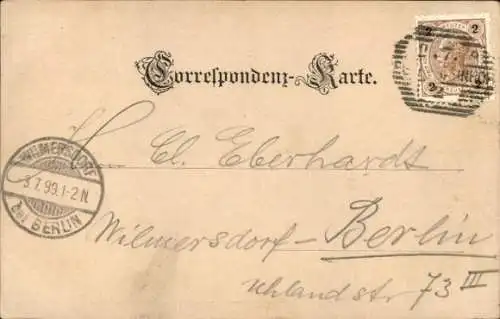 2 2
2 2
Correspondenz-Karte.
WILMERSDORF
3.7.99.1-2N.
bei BERLIN
Cl. Eberhardt
Wilmersdorf-Berlin
Uhlandstr 73 III